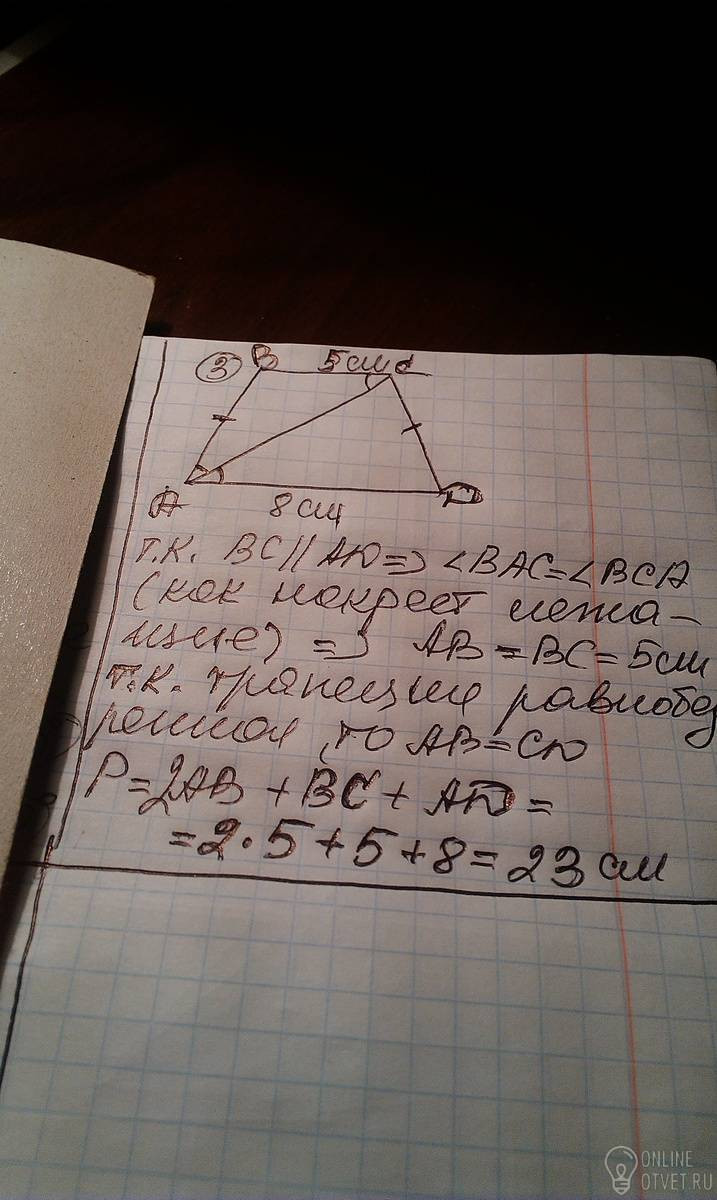 ③ B 5см C
A 8см D
т.к. BC||AD=> <BAC=<BCA
(как накрест лежа-
щие) => AB=BC=5см
т.к. трапеция равнобед
ренная, то AB=CD
P=2AB+BC+AD=
=2·5+5+8=23см
ONLINE
OTVET.RU